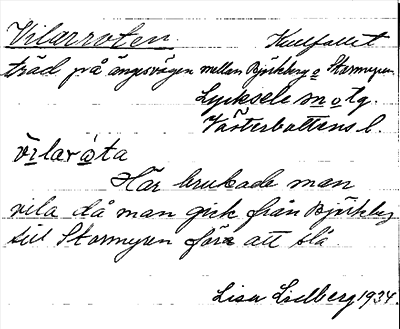 Vilarroten. Kullfallet
träd på ängsvägen mellan Björkberg o Stormyren.
Lycksele sn o tg.
Västerbottens l.
vilarọ̀ta
Här brukade man
vila då man gick från Björkberg
till Stormyren för att slå.
Lisa Lidberg 1934.